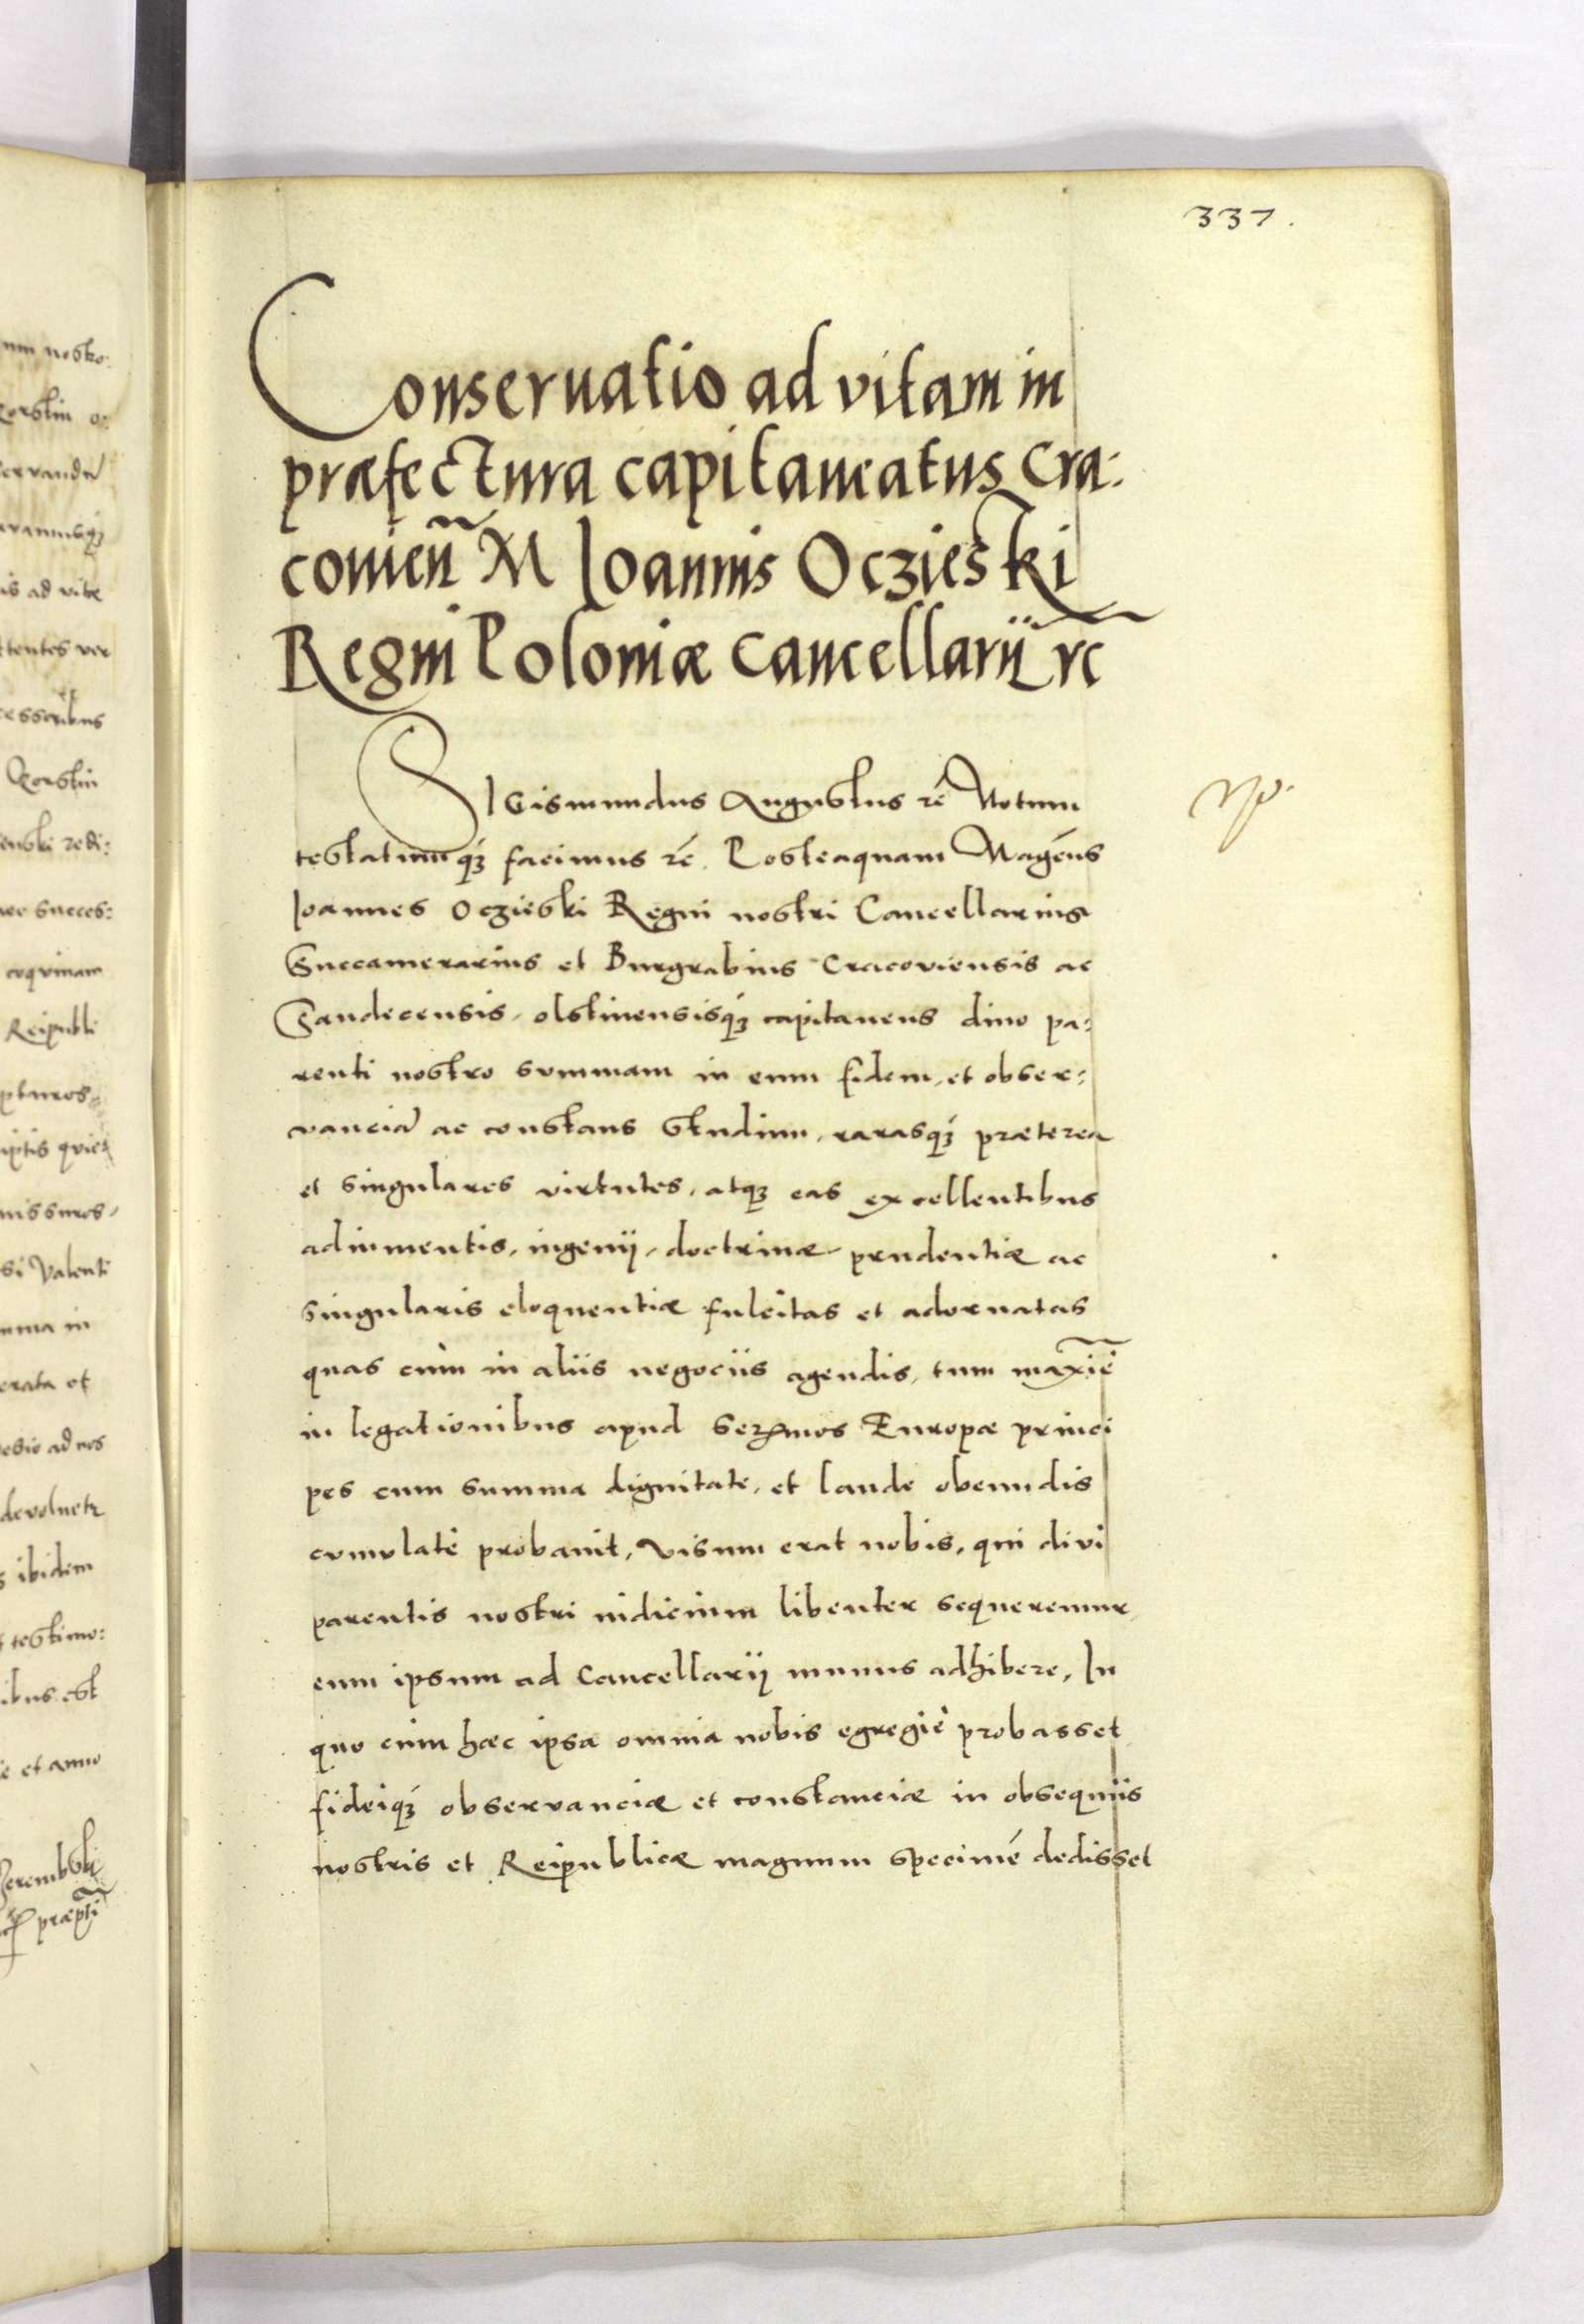 337.
Conseruatio ad vitam in
præfectura capitaneatus Cra:
couien̄ M Ioannis Oczieski
Regni Poloniæ Cancellarij rc̄
SIGismundus Augustus rc̄ Notum
testatumq́ꝫ facimus rc̄. Posteaquam Magc̄us
Ioannes Oczieski Regni nostri Cancellarius
Succamerarius et Burgrabius Cracoviensis ac
Sandecensis, olstinensisq́ꝫ capitaneus diuo pa:
renti nostro summam in eum fidem, et obser:
vanciā ac constans studium, rarasq́ꝫ præterea
et singulares virtutes, atqꝫ eas excellentibus
adiumentis, ingenij, doctrinæ, prudentiæ ac
singularis eloquentiæ fulcitas et adornatas
quas cùm in aliis negociis agendis, tum maxīe
in legationibus apud serꝫmos Europæ princi
pes cum summa dignitate, et laude obeundis
cumulatè probauit, visum erat nobis, qui divi
parentis nostri iudicium libenter sequeremur
eum ipsum ad Cancellarij munus adhibere, In
quo cùm hæc ipsa omnia nobis egregiè probasset
fideiq́ꝫ observanciæ et constanciæ in obsequiis
nostris et Reipublicæ magnum specimē dedisset